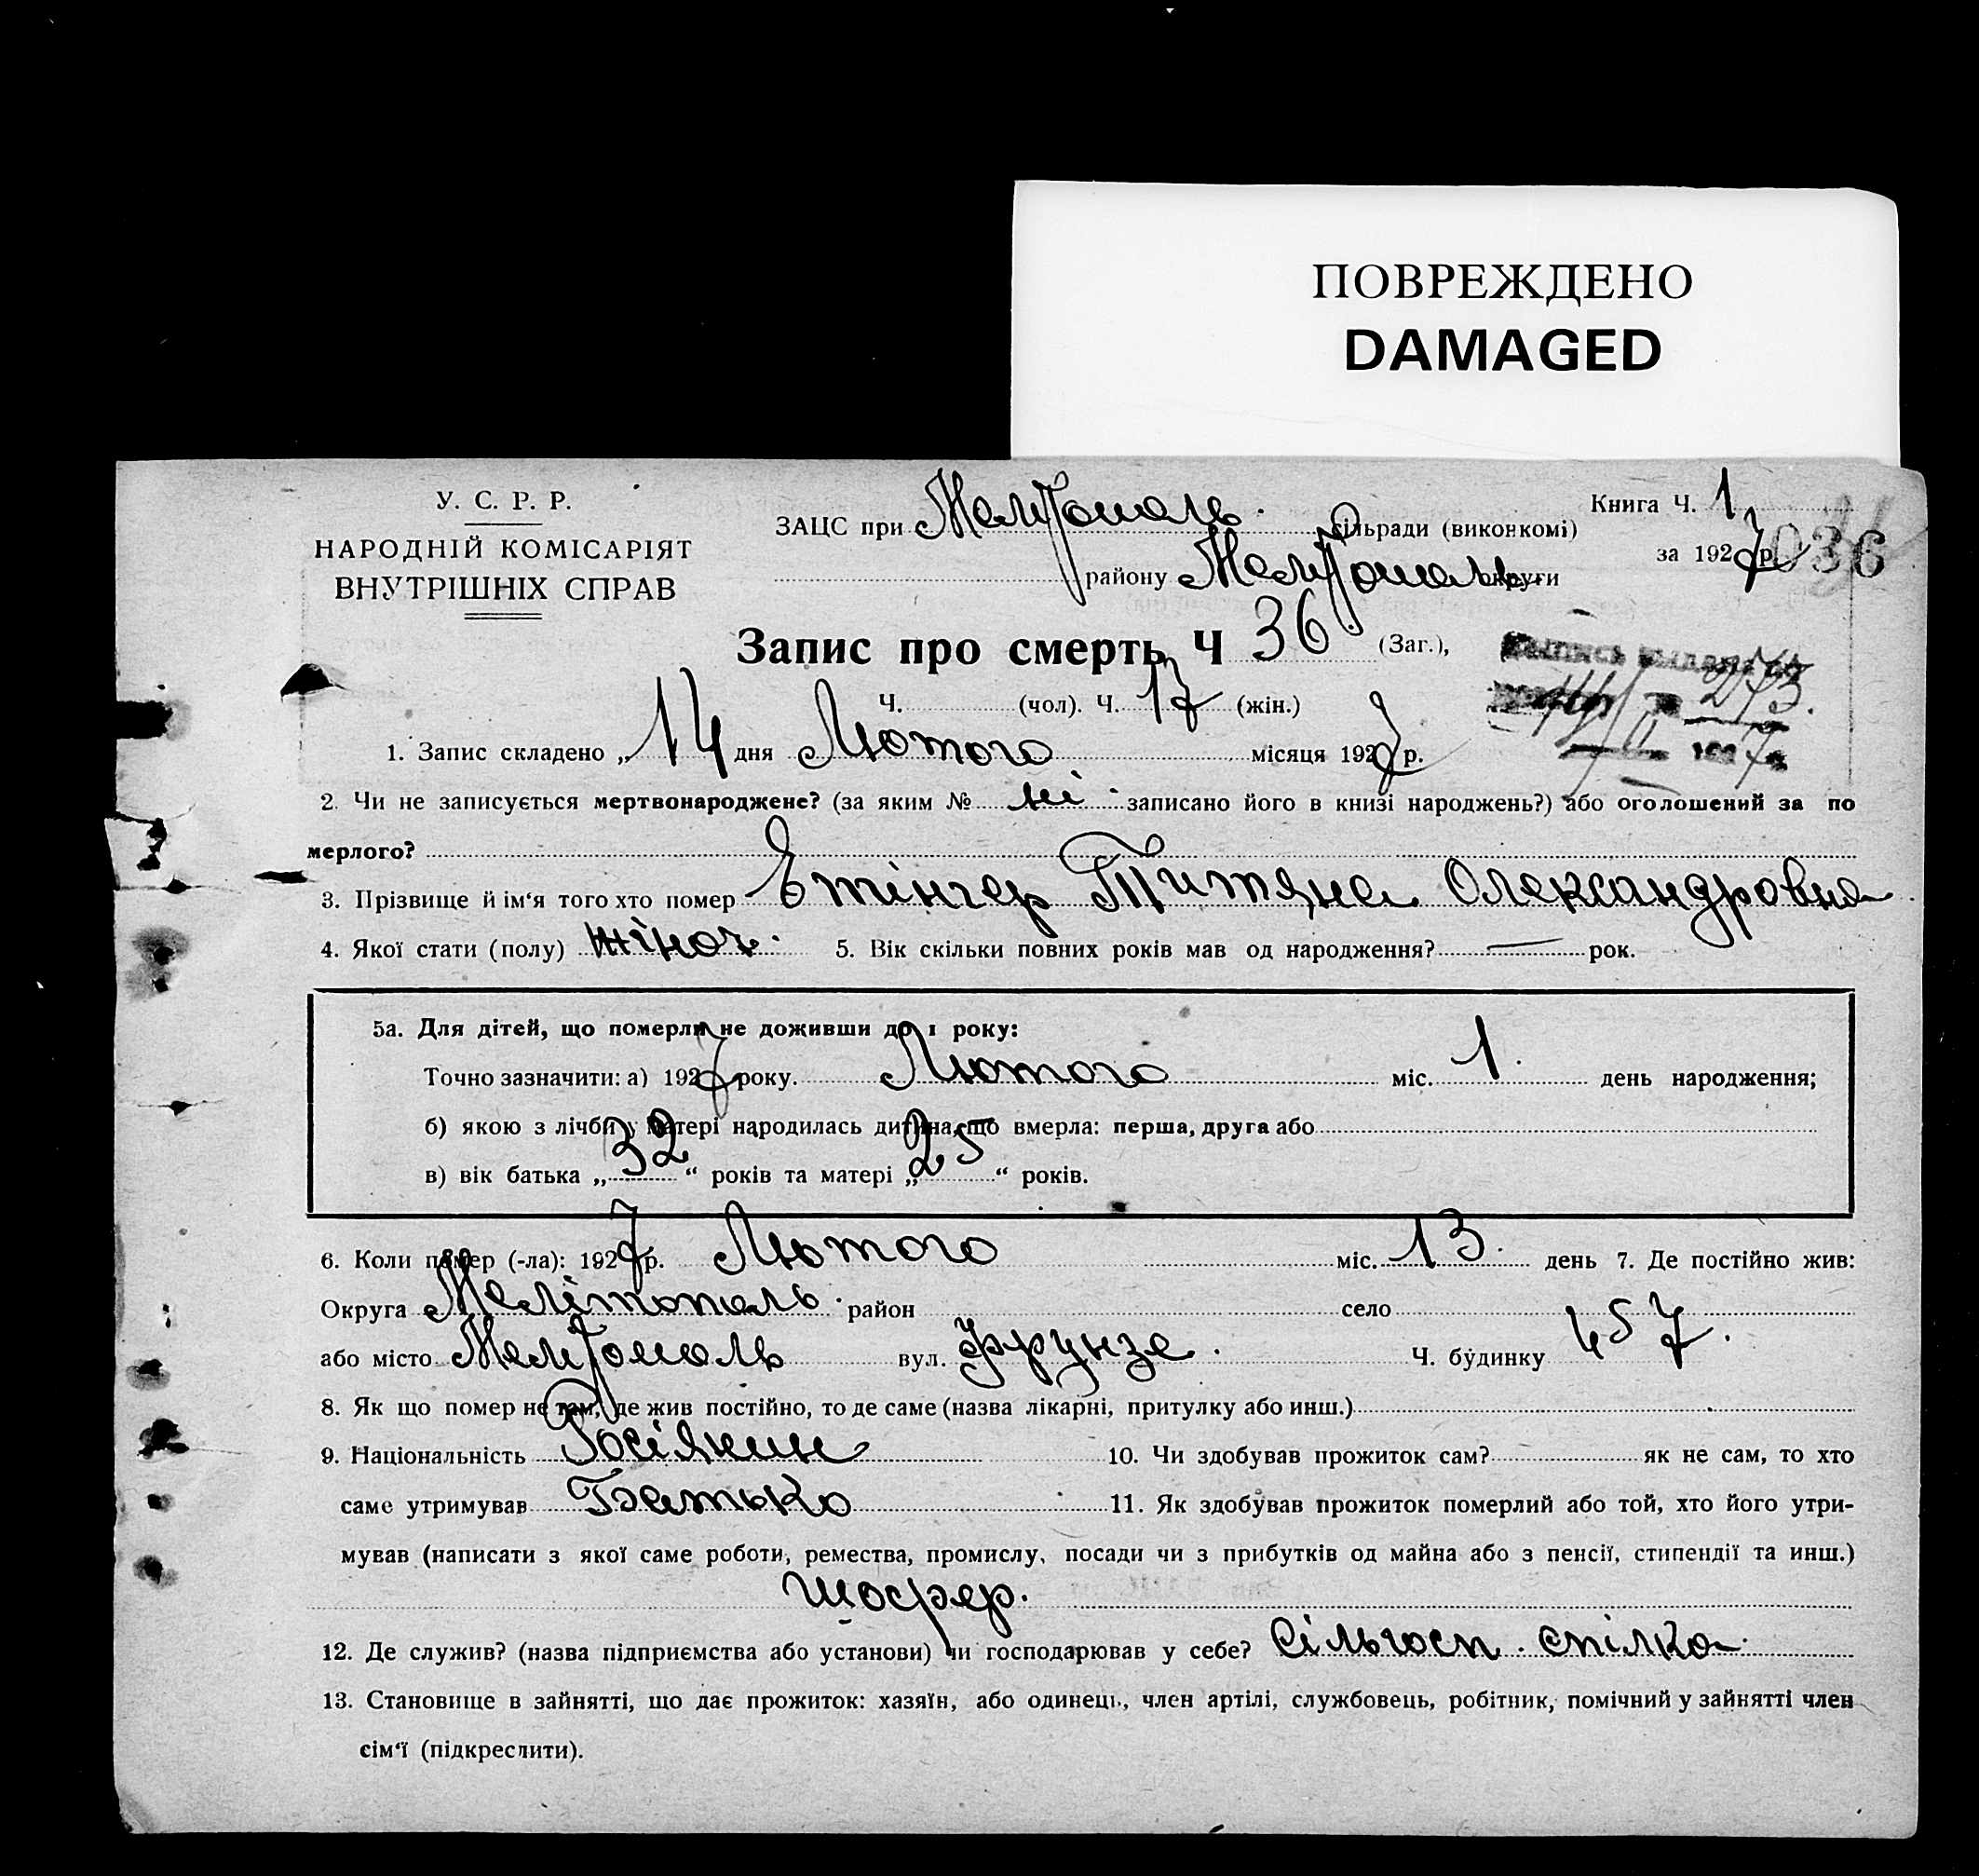 ПОВРЕЖДЕНО
DAMAGED
У. С. Р. Р.
НАРОДНІЙ КОМІСАРІЯТ
ВНУТРІШНІХ СПРАВ
ЗАЦС при Мелітополь. сільради (виконкомі)
району Мелітополь округи
Книга Ч. 1
за 1927 р.
036
Запис про смерть Ч 36 (Заг.),
Ч. (чол). Ч. 17 (жін.)
273.
1. Запис складено „14 дня Лютого місяця 1927 р.
2. Чи не записується мертвонароджене? (за яким № ні записано його в книзі народжень?) або оголошений за по
мерлого?
3. Прізвище й ім'я того хто помер Етінгер Титяна Олександровна
4. Якої стати (полу) жіноч. 5. Вік скільки повних років мав од народження? — рок.
5а. Для дітей, що померли не доживши до 1 року:
Точно зазначити: а) 1927 року. Лютого міс. 1. день народження;
б) якою з лічби у матері народилась дитина, що вмерла: перша, друга або
в) вік батька „32“ років та матері „25“ років.
6. Коли помер (-ла): 1927 р. Лютого міс. 13. день 7. Де постійно жив:
Округа Мелітополь. район село
або місто Мелітополь вул. Фрунзе. Ч. будинку 457.
8. Як що помер не там, де жив постійно, то де саме (назва лікарні, притулку або инш.)
9. Національність Росіянин 10. Чи здобував прожиток сам? як не сам, то хто
саме утримував Батько 11. Як здобував прожиток померлий або той, хто його утри-
мував (написати з якої саме роботи, ремества, промислу, посади чи з прибутків од майна або з пенсії, стипендії та инш.)
Шофер.
12. Де служив? (назва підприємства або установи) чи господарював у себе? Сільгосп. спілка.
13. Становище в зайнятті, що дає прожиток: хазяїн, або одинець, член артілі, службовець, робітник, помічний у зайнятті член
сім'ї (підкреслити).